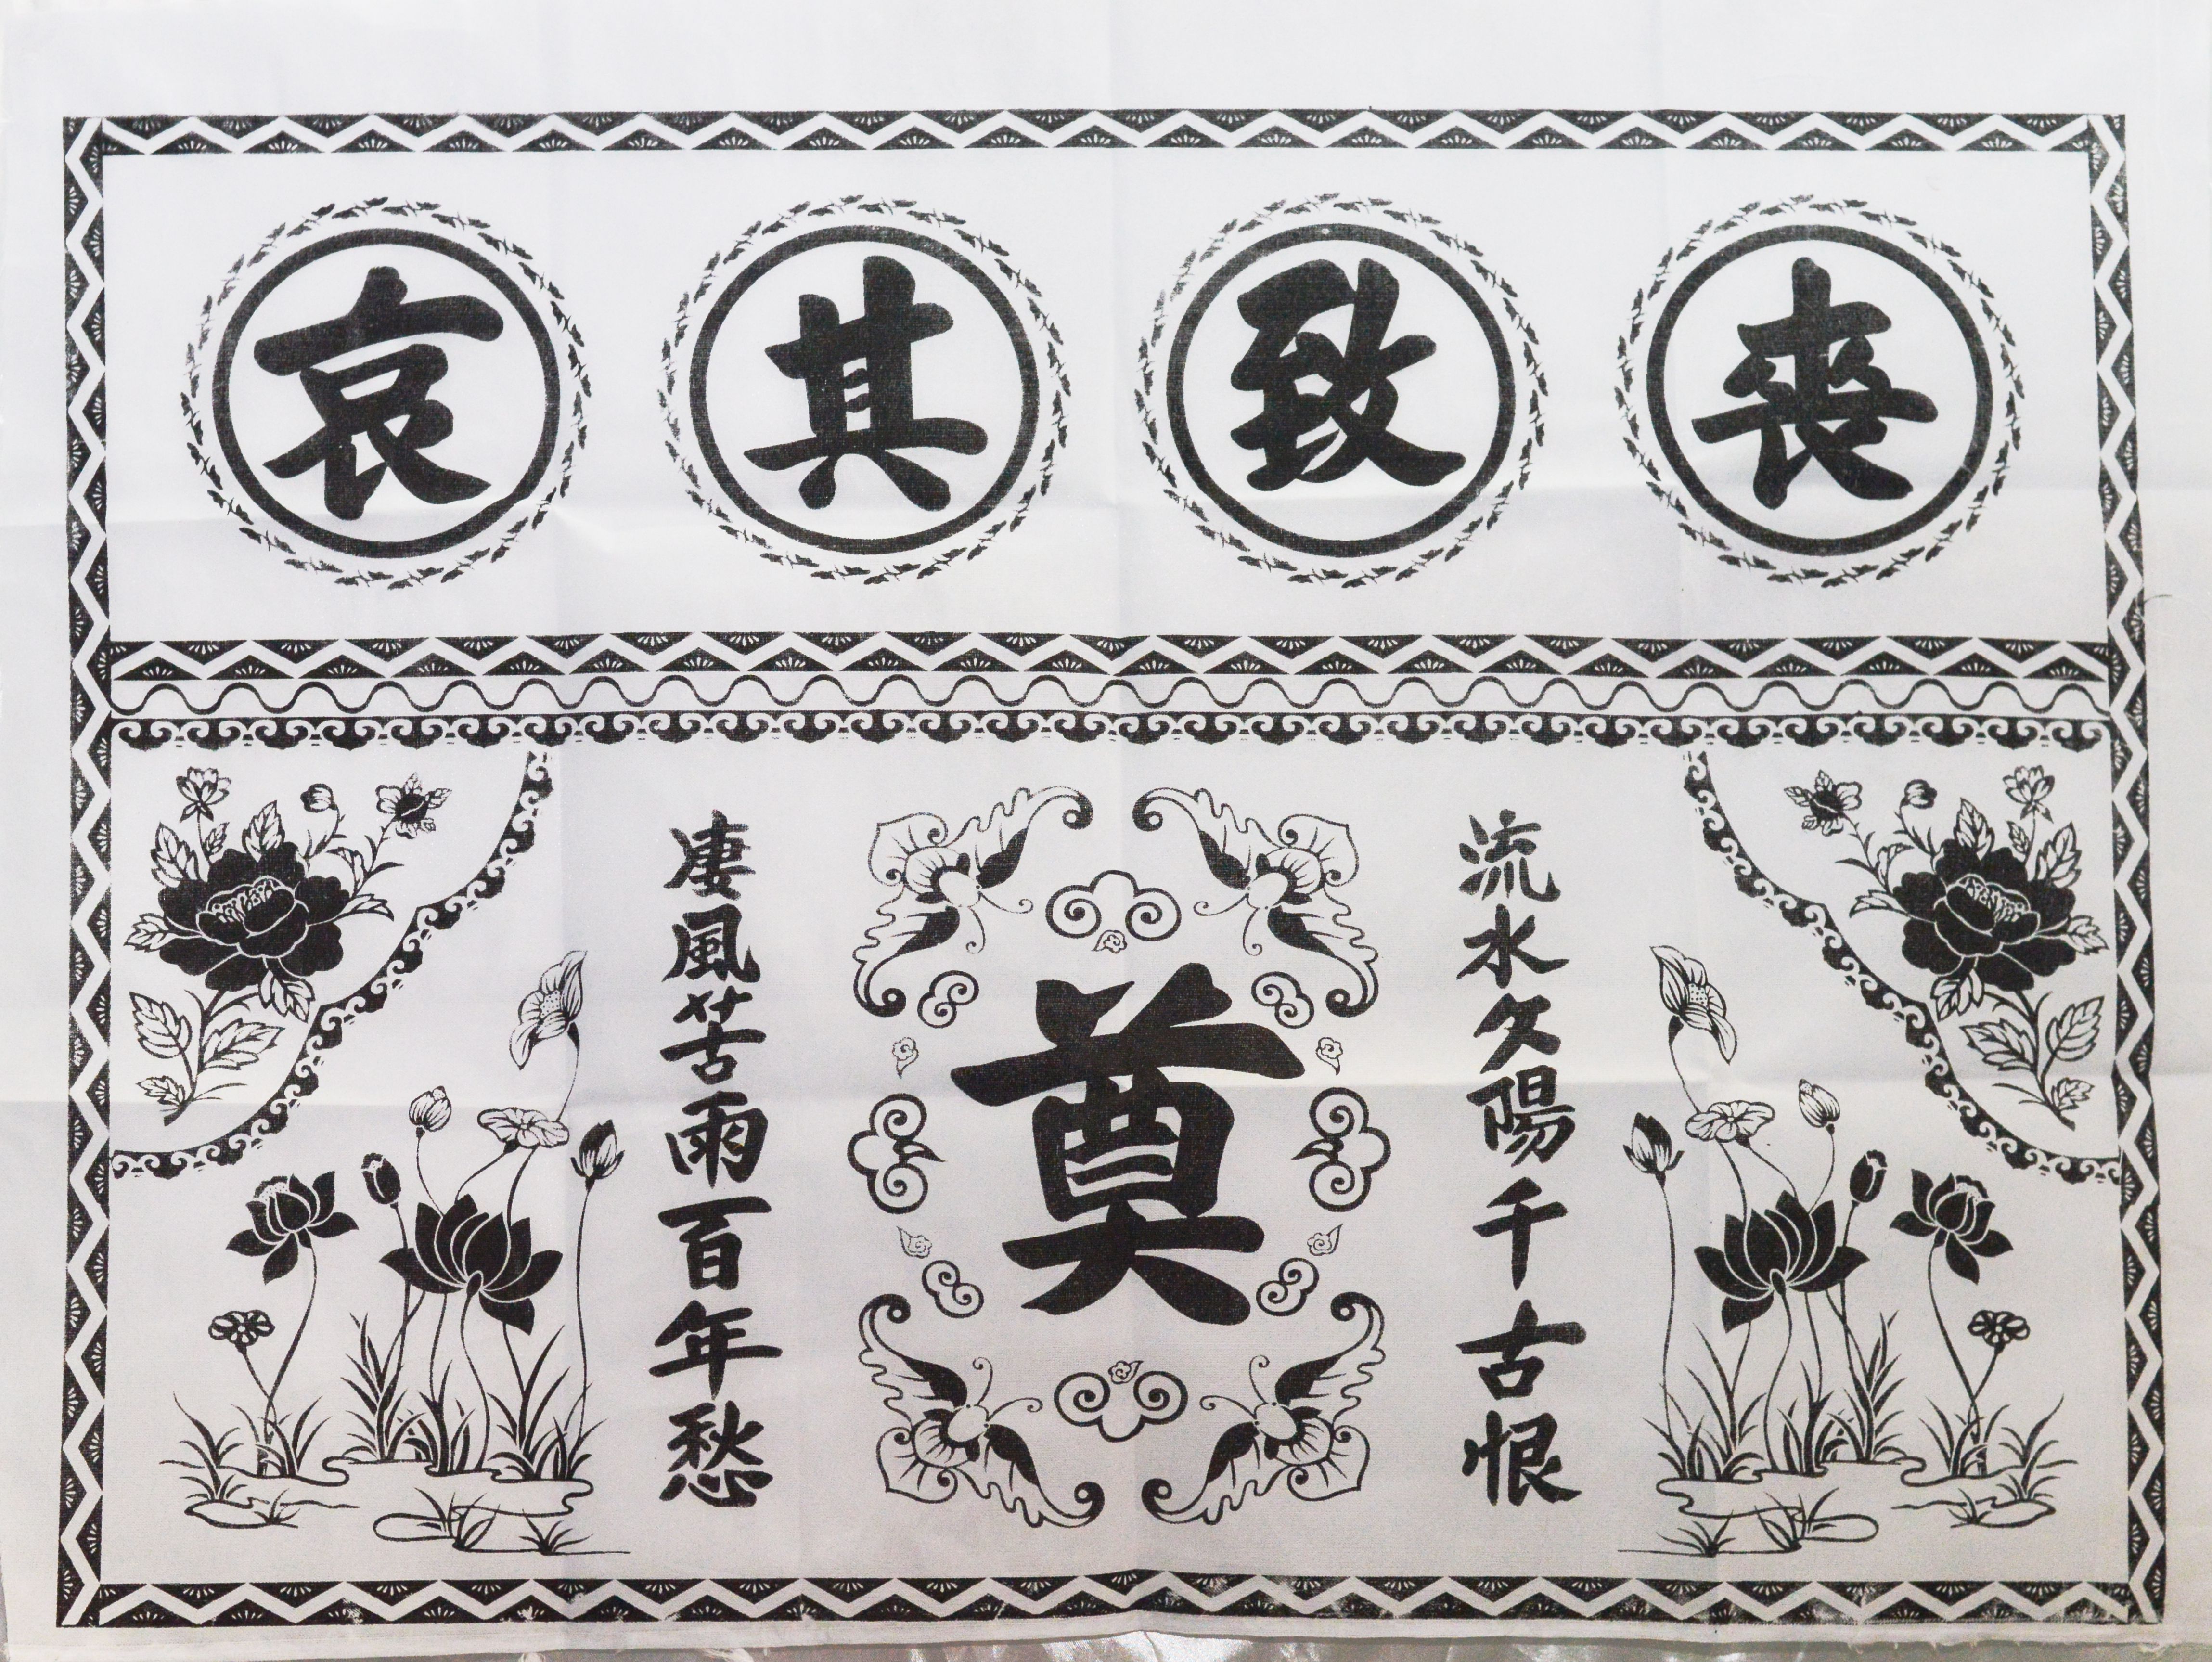 喪致其哀
流水夕陽千古恨
奠
凄風苦雨百年愁